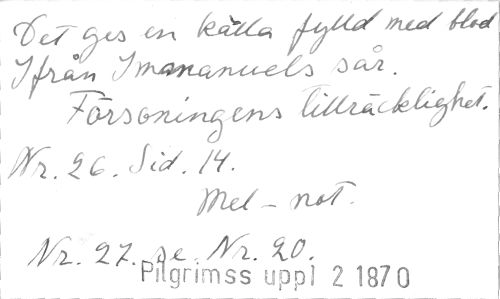 Det ges en källa fylld med blod
Ifrån Immanuels sår.
Försoningens tillräcklighet.
Nr. 26. Sid. 14.
Mel-not.
Nr. 27. se. Nr. 20.
Pilgrimss uppl 2 1870